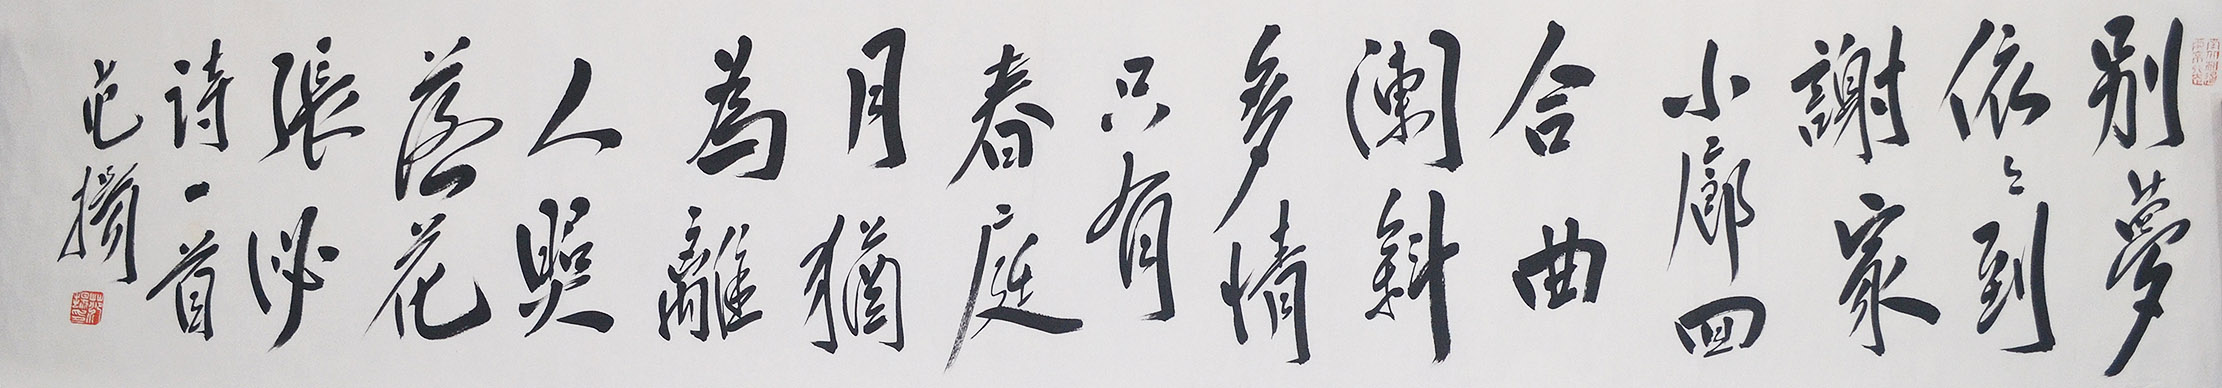 别夢
依〻到
謝家
小廊回
合曲
闌斜
多情
只有
春庭
月猶
為離
人照
落花
張泌
詩一首
范